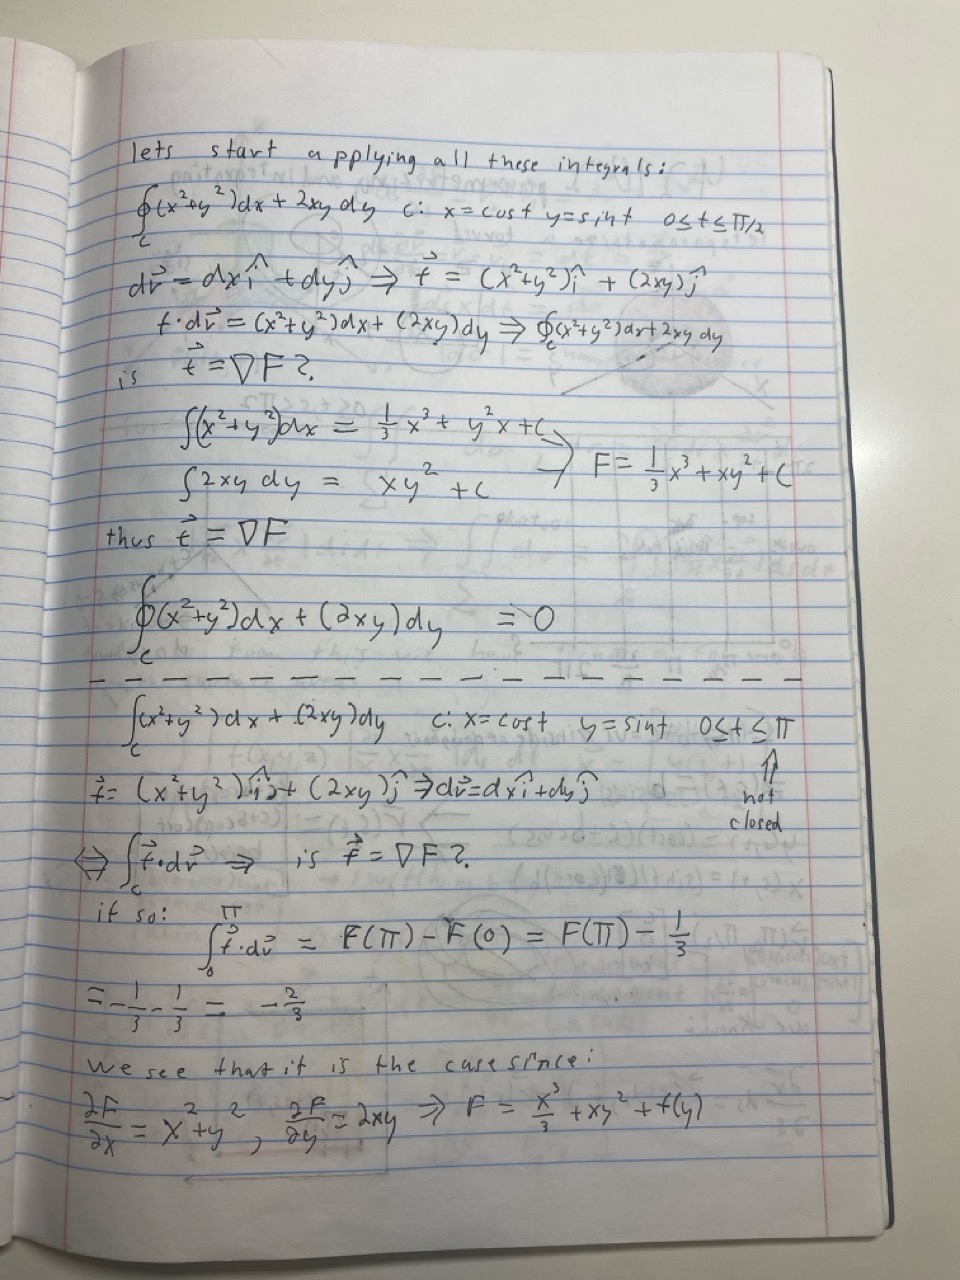 lets start applying all these integrals:
∮_C (x²+y²)dx + 2xy dy C: x=cost y=sint 0≤t≤π/2
dr⃗ = dxî + dyĵ ⇒ f⃗ = (x²+y²)î + (2xy)ĵ
f·dr⃗ = (x²+y²)dx + (2xy)dy ⇒ ∮_C (x²+y²)dx + 2xy dy
is f⃗ = ∇F?
∫(x²+y²)dx = 1/3 x³ + y²x + C
∫2xy dy = xy² + C → F = 1/3 x³ + xy² + C
thus f⃗ = ∇F
∮_C (x²+y²)dx + (2xy)dy = 0
∫_C (x²+y²)dx + (2xy)dy C: x=cost y=sint 0≤t≤π
⇑
f⃗ = (x²+y²)î + (2xy)ĵ ⇒ dr⃗ = dxî + dyĵ
not closed
⇔ ∫_C f⃗·dr⃗ ⇒ is f⃗ = ∇F?
if so:
∫_0^π f⃗·dr⃗ = F(π) - F(0) = F(π) - 1/3
= -1/3 - 1/3 = -2/3
we see that it is the case since:
∂F/∂x = x²+y², ∂F/∂y = 2xy ⇒ F = x³/3 + xy² + f(y)